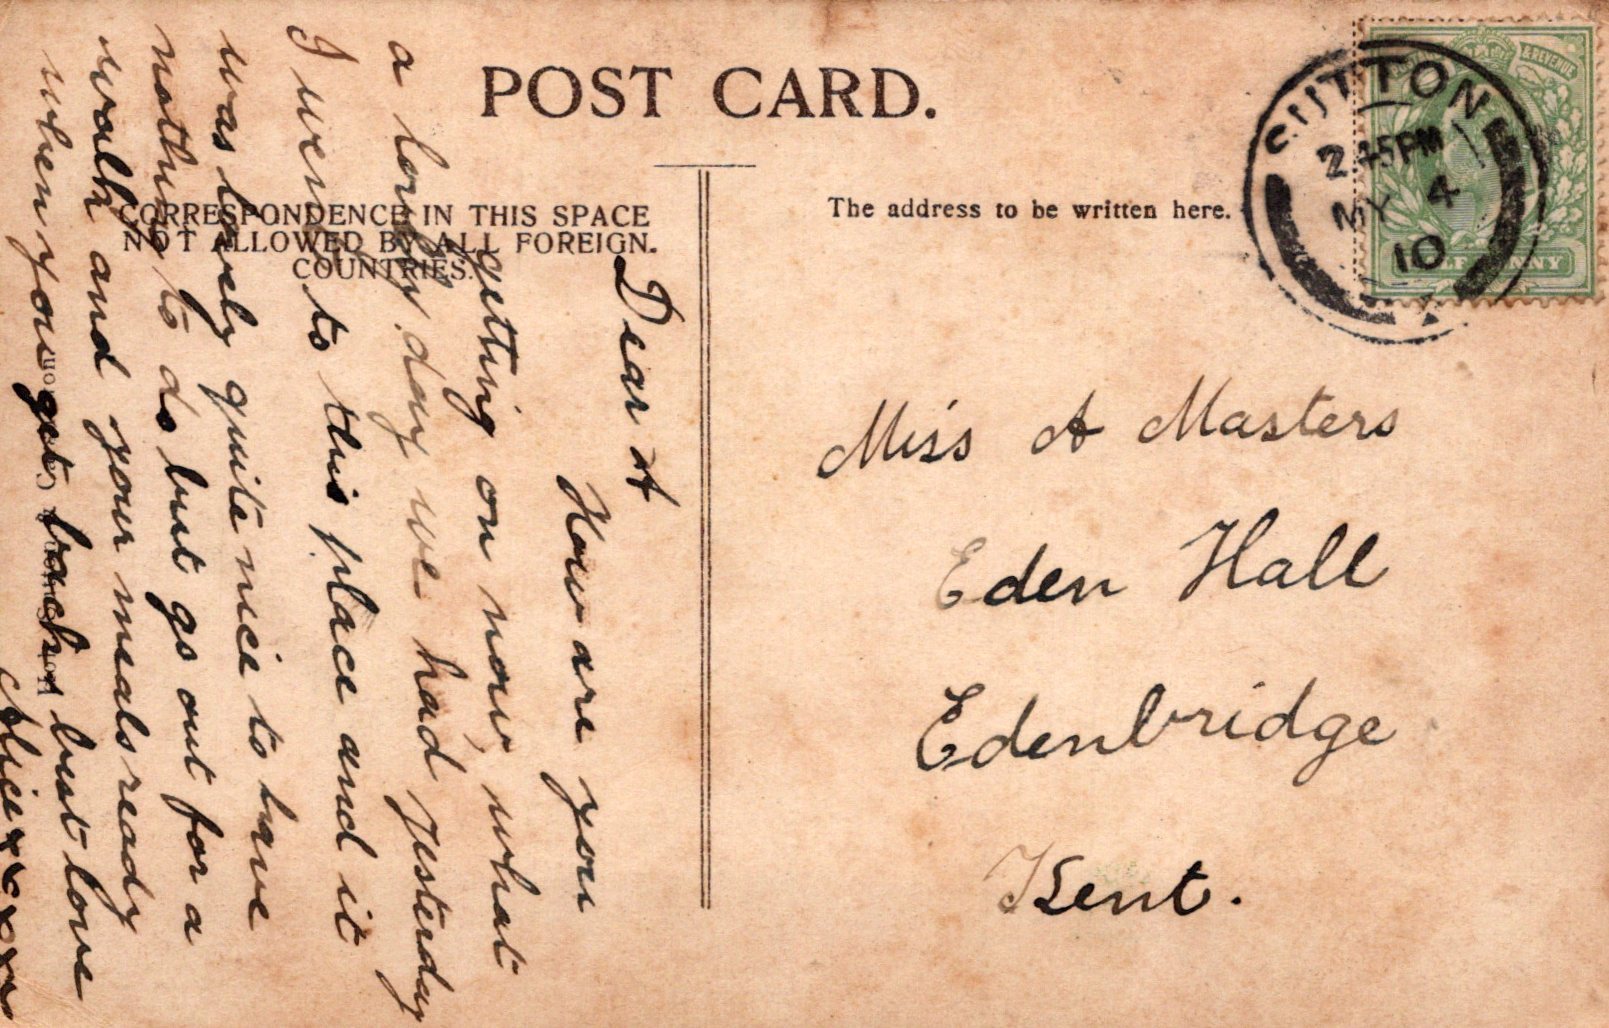 POST CARD.
CORRESPONDENCE IN THIS SPACE
NOT ALLOWED BY ALL FOREIGN.
COUNTRIES.
The address to be written here.
& REVENUE
HALFPENNY
SUTTON
2 45 PM
MY 4
10
Miss A Masters
Eden Hall
Edenbridge
Kent.
Dear A
How are you
getting on now, what
a lovely day we had Yesterday
I went to this place and it
was lovely quite nice to have
nothing to do but go out for a
walk and your meals ready
when you get back best love
Alice x x x x x x